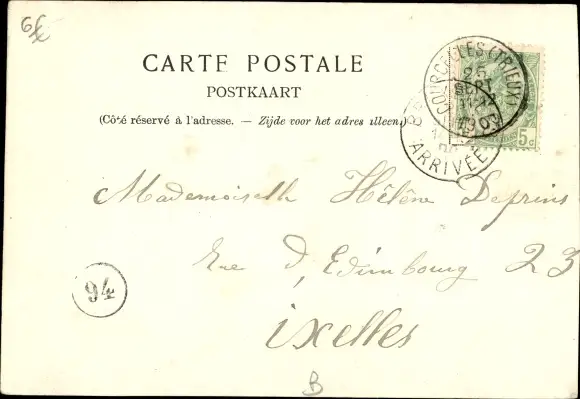 CARTE POSTALE
POSTKAART
(Côté réservé à l'adresse. — Zijde voor het adres alleen.)
COURCELLES (TRIEUX)
25
SEPT
1903
ARRIVÉE
5c
Mademoiselle Hélène Deprins
Rue d'Edimbourg 23
Ixelles
94
B